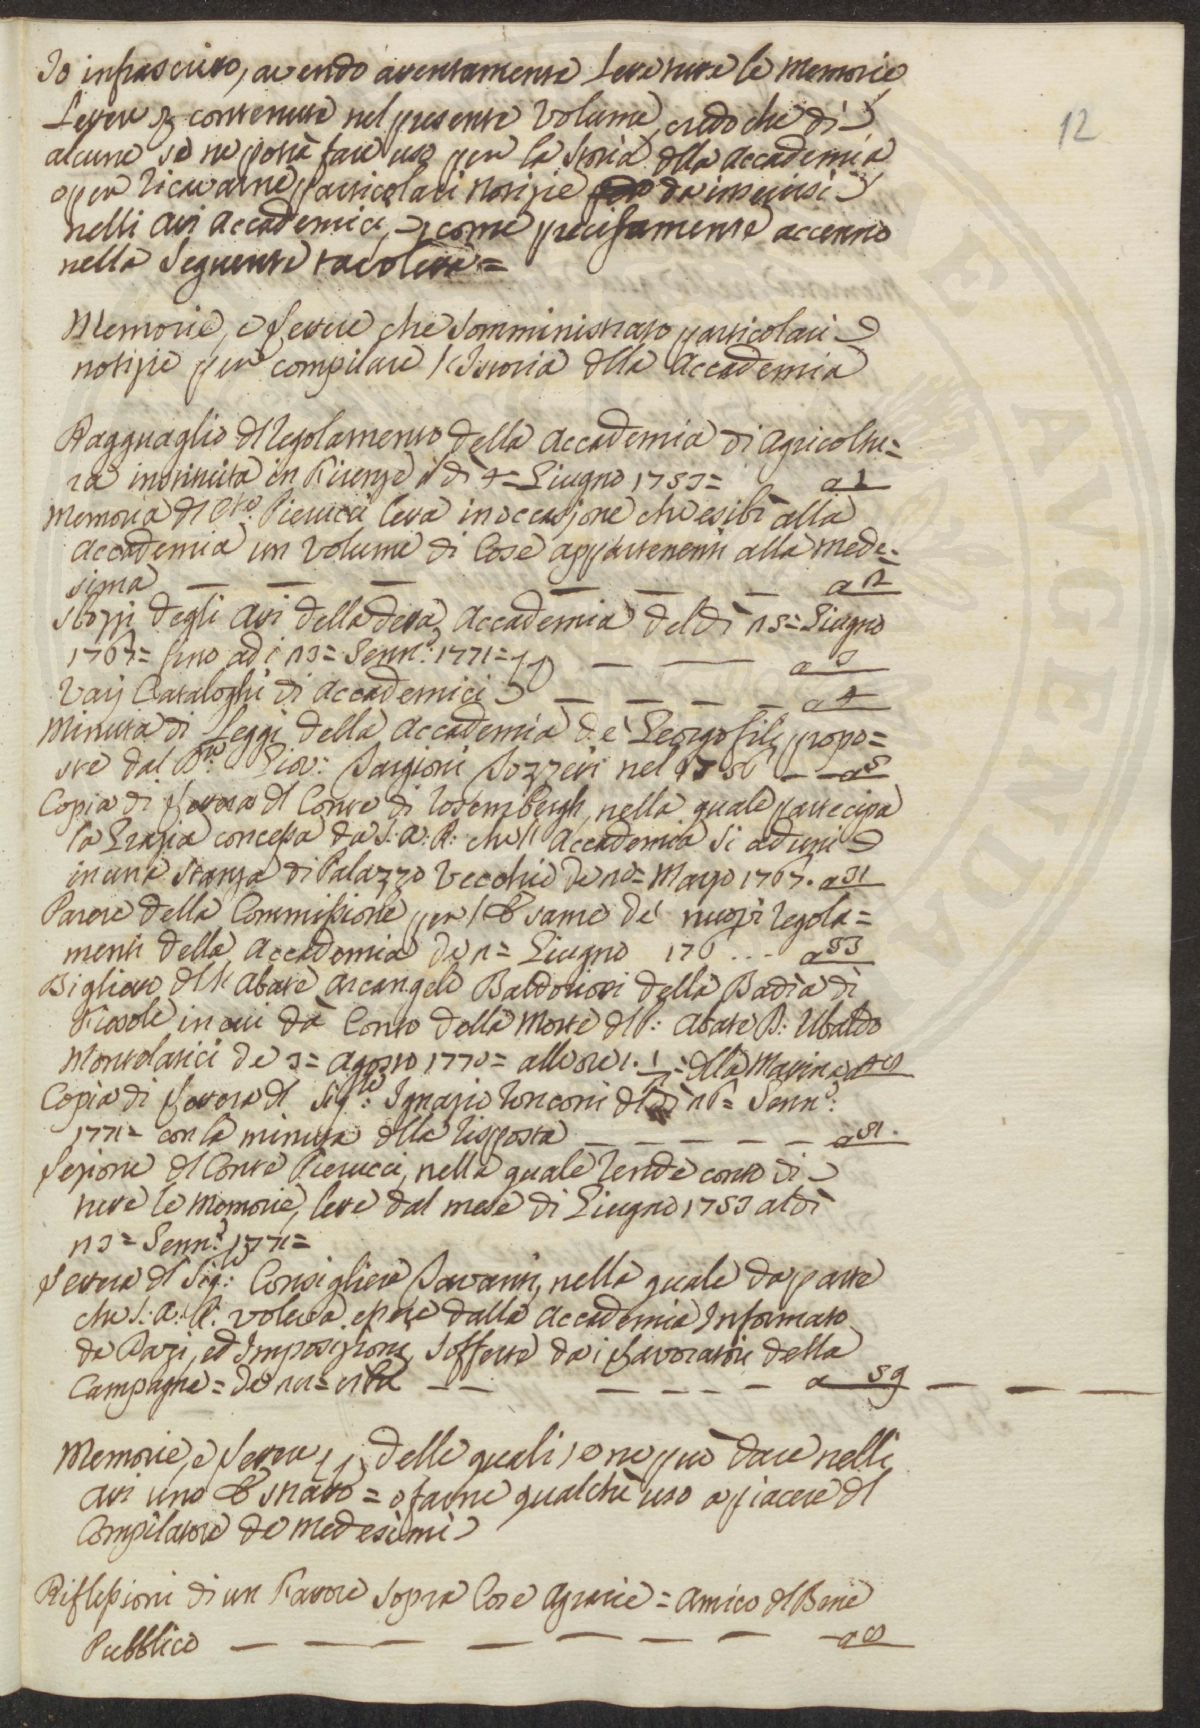 12
Io infrascritto, avendo attentamente Lette tutte le Memorie
Lettere & contenute nel presente Volume, credo che di
alcune se ne potrà fare uso per la Storia della Accademia
o per ricavarne particolari notizie da inserirsi
nelli Atti Accademici, come precisamente accenno
nella Seguente tavoletta=
Memorie, e Lettere che somministrano particolari
notizie per compilare l'Istoria della Accademia
Ragguaglio del regolamento della Accademia di Agricoltu=
ra instituita in Firenze il dì 4= Giugno 1753= a 1
Memoria del Cte: Pierucci letta in occasione che esibì alla
Accademia un Volume di Cose appartenenti alla mede=
sima — — — — — — a 2
Stozzi degli Atti della detta Accademia del dì 25= Giugno
1767= fino ad i 23= Genn: 1771= — — a 3
Varj Cataloghi di Accademici — — — — a 4
Minuta di Leggi della Accademia de' Georgofili propo=
ste dal Dre: Giov: Targioni Tozzetti nel 1756 — — a 5
Copia di Lettera del Conte di Rosemberg, nella quale partecipa
la Grazia concessa da S: A: R: che l'Accademia si aduni
in una Stanza di Palazzo Vecchio de 20= Marzo 1767. a 31
Parere della Commissione per l'Esame de' nuovi regola=
menti della Accademia de 2= Giugno 176 ... a 33
Biglietto dell'Abate Arcangelo Baldovinetti della Badia di
Fiesole in cui dà Conto della Morte del P: Abate D: Ubaldo
Montelatici de 3= Agosto 1770= alle ore 1. 1/2= della Mattina a 48
Copia di Lettera del Sigre: Ignazio Ronconi del dì 26= Genn:
1771= con la minuta della risposta — — — — — a 51.
Lezione del Conte Pierucci, nella quale rende conto di
tutte le Memorie, lette dal mese di Giugno 1753 al dì
23= Genn: 1771=
Lettera del Sigre: Consigliere Tavanti, nella quale dà parte
che S: A: R: voleva essere dalla Accademia Informato
de Dazi, ed Imposizioni, sofferte da i Lavoratori della
Campagna= de — — — — — — a 59 — — —
Memorie, e Lettere delle quali se ne può dare nelli
Atti uno Estratto= o farne qualche uso a piacere del
Compilatore de Medesimi
Riflessioni di un Fattore sopra Cose Agrarie= Amico del Bene
Pubblico — — — — — — — a 8